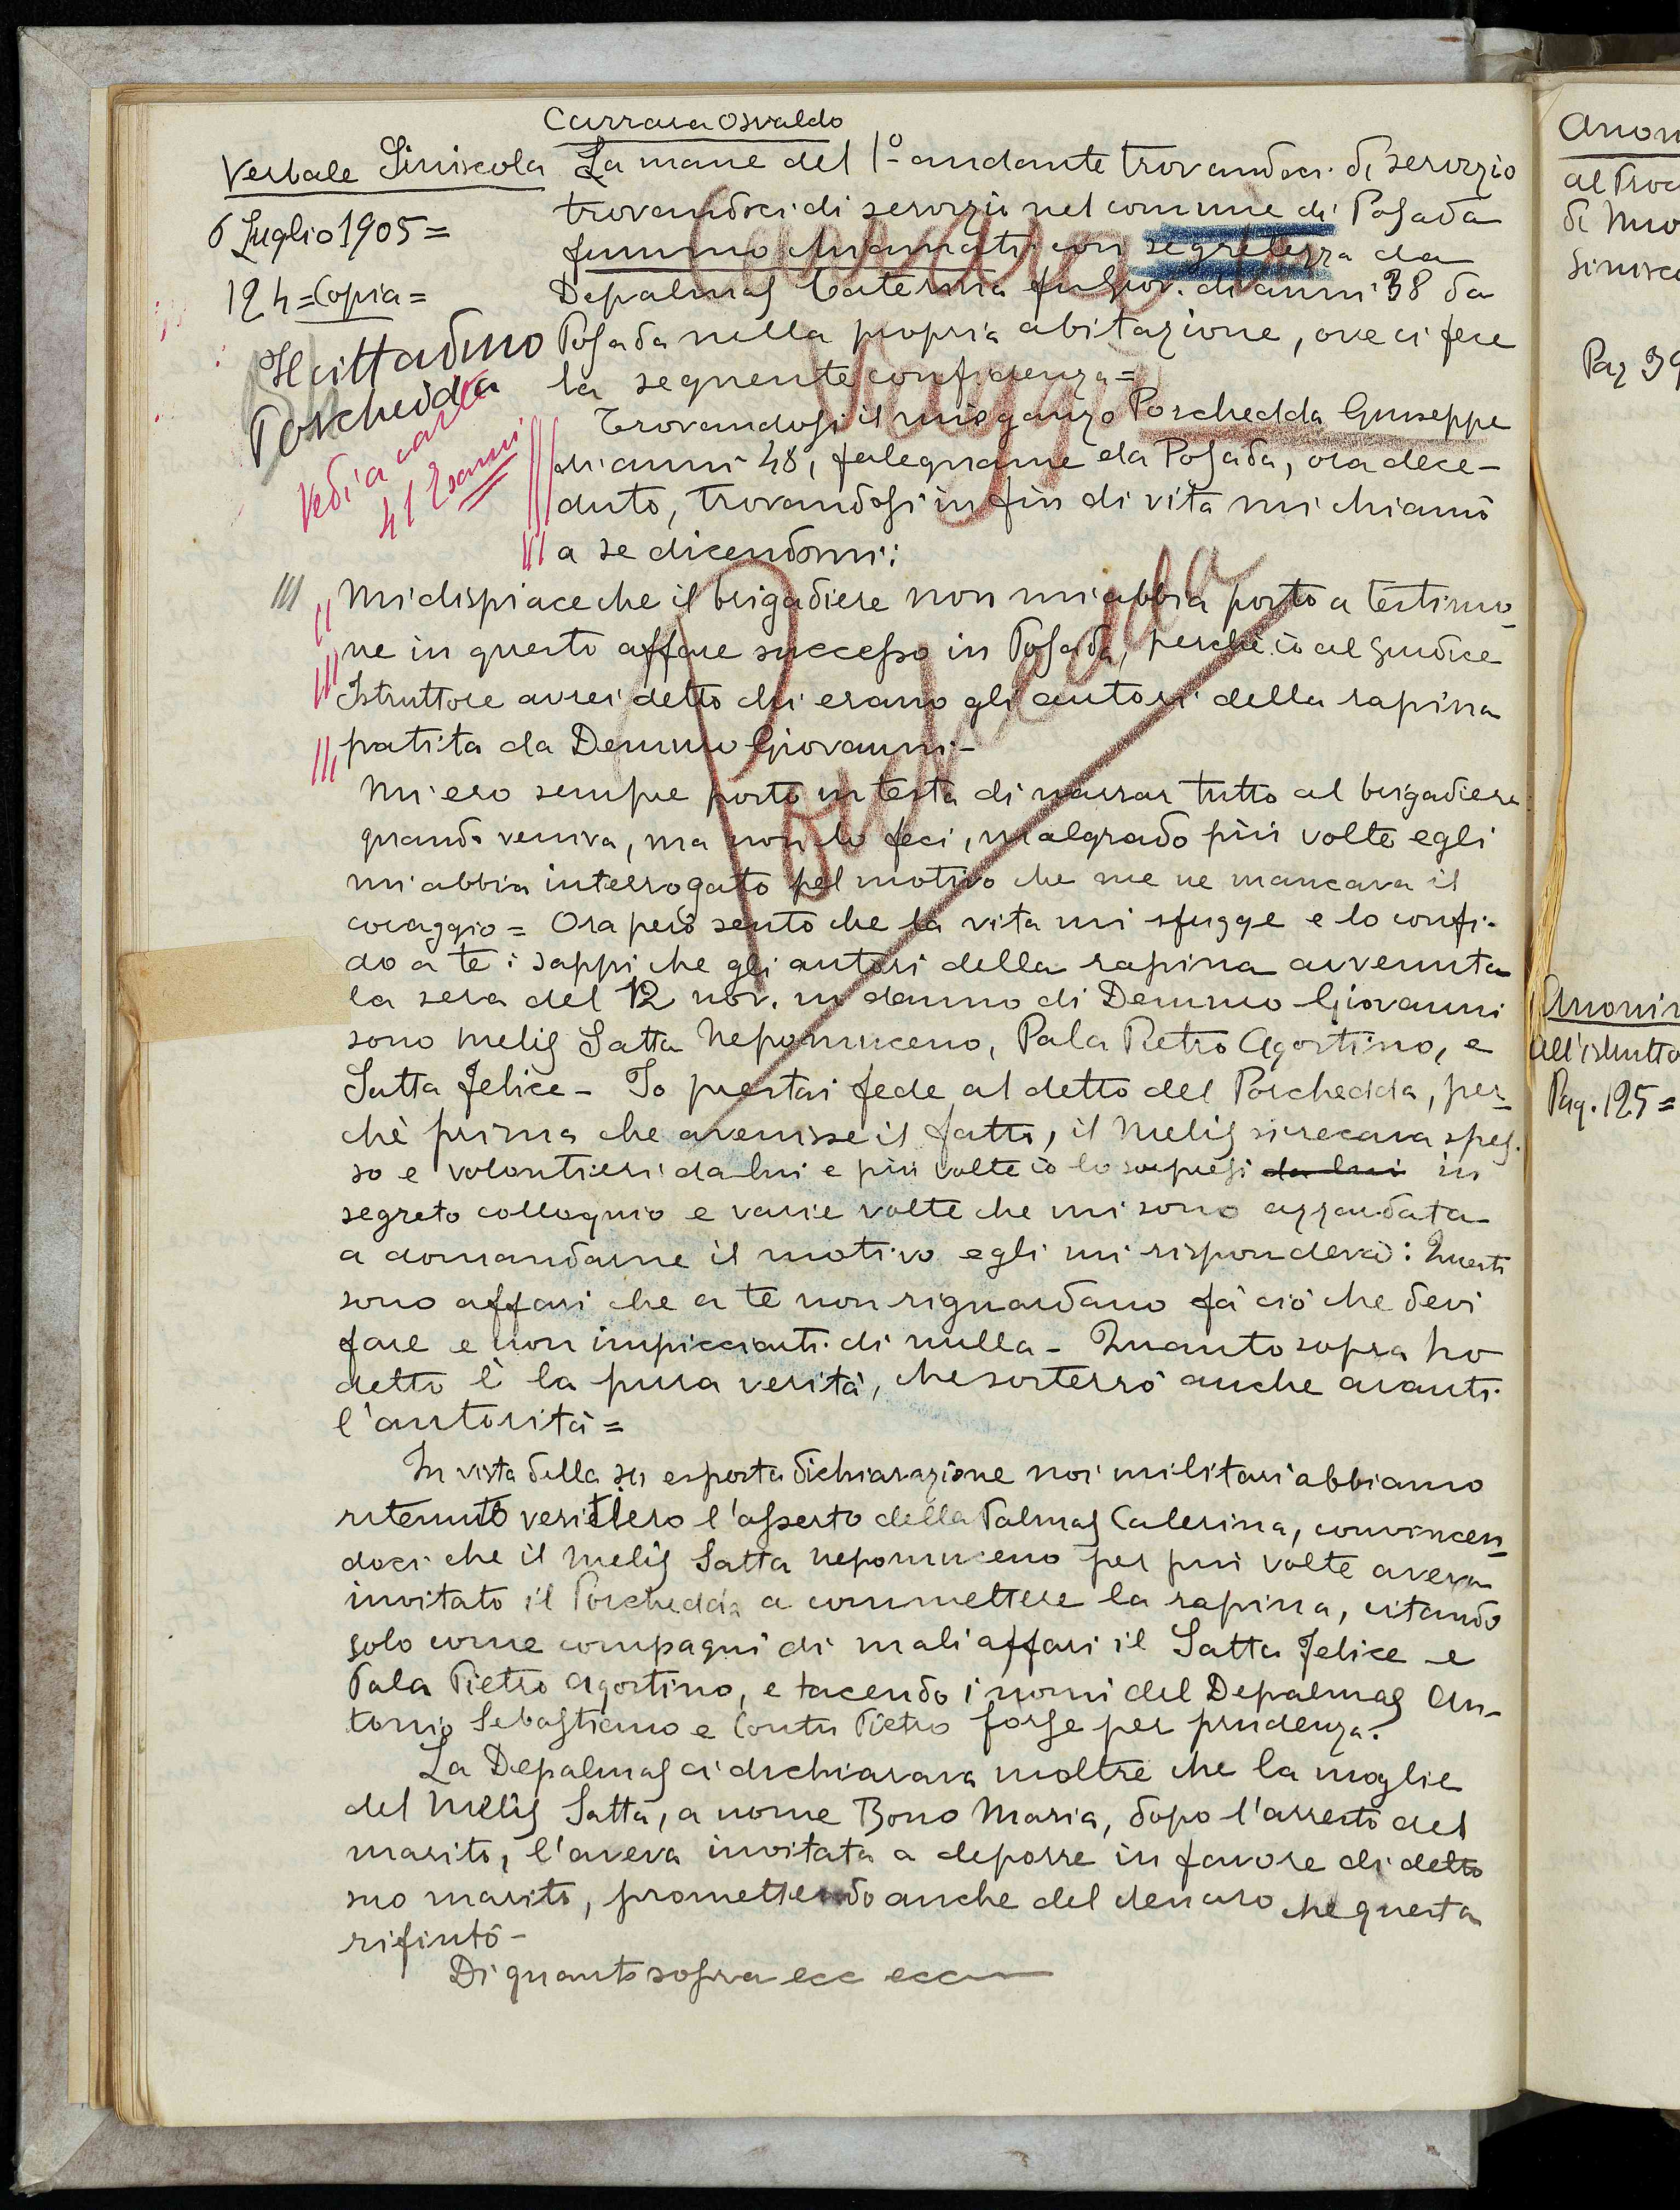 Carrara Osvaldo
Verbale Siniscola
6 Luglio 1905=
124=Copia=
Il cittadino
Porchedda
Vedi a carte
41 Esami
La mane del 1° andante trovandoci di servizio
trovandoci di servizio nel comune di Posada
fummo chiamati con segretezza da
Depalmas Caterina fu Giov. di anni 38 da
Posada nella propria abitazione, ove ci fece
la seguente confidenza=
Trovandosi il mio ganzo Porchedda Giuseppe
di anni 48, falegname da Posada, ora dece-
duto, trovandosi in fin di vita mi chiamò
a se dicendomi:
Mi dispiace che il brigadiere non mi abbia posto a testimo-
ne in questo affare successo in Posada, perché io al Giudice
Istruttore avrei detto chi erano gli autori della rapina
patita da Demuro Giovanni-
Mi ero sempre posto in testa di narrar tutto al brigadiere
quando veniva, ma non lo feci, malgrado più volte egli
mi abbia interrogato pel motivo che me ne mancava il
coraggio= Ora però sento che la vita mi sfugge e lo confi-
do a te: sappi che gli autori della rapina avvenuta
la sera del 12 nov. in danno di Demuro Giovanni
sono Melis Satta Nepomuceno, Pala Pietro Agostino, e
Satta Felice- Io prestai fede al detto del Porchedda, per-
chè prima che avenisse il fatto, il Melis si recava spes-
so e volontieri da lui e più volte io lo sorpresi da lui in
segreto colloquio e varie volte che mi sono azzardata
a domandarne il motivo egli mi rispondeva: Questi
sono affari che a te non riguardano fà ciò che devi
fare e non impicciarti di nulla- Quanto sopra ho
detto è la pura verità, che sosterrò anche avanti
l'autorità=
In vista della su esposta dichiarazione noi militari abbiamo
ritenuto veritiero l'asserto della Palmas Caterina, convincen-
doci che il Melis Satta Nepomuceno per più volte aveva
invitato il Porchedda a commettere la rapina, citando
solo come compagni di mali affari il Satta Felice e
Pala Pietro Agostino, e tacendo i nomi del Depalmas An-
tonio Sebastiano e Contu Pietro forse per prudenza.
La Depalmas ci dichiarava inoltre che la moglie
del Melis Satta, a nome Bono Maria, dopo l'arresto del
marito, l'aveva invitata a deporre in favore di detto
suo marito, promettendo anche del denaro che questa
rifiutò-
Di quanto sopra ecc ecc
Porchedda
Anon
al Proc
di Nuo
Sinisco
Pag 39
Anonim
all'istrutto
Pag. 125=